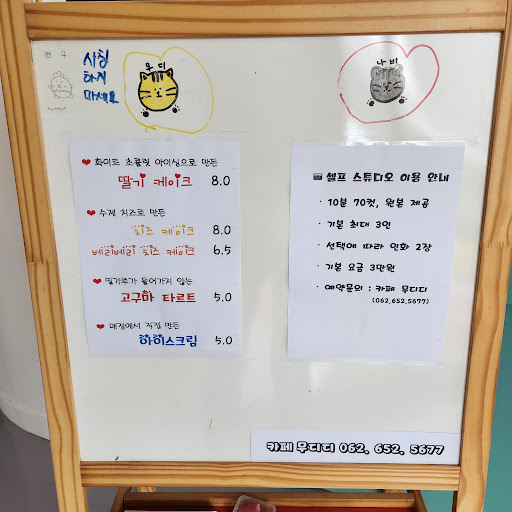 무디
나비
❤ 화이트 초콜릿 아이싱으로 만든
딸기 케이크 8.0
❤ 수제 치즈로 만든
치즈 케이크 8.0
베리베리 치즈 케이크 6.5
❤ 밀가루가 들어가지 않는
고구마 타르트 5.0
❤ 매장에서 직접 만든
아이스크림 5.0
셀프 스튜디오 이용 안내
· 10분 70컷, 원본 제공
· 기본 최대 3인
· 선택에 따라 인화 2장
· 기본 요금 3만원
· 예약문의 : 카페 무디디
(062,652,5677)
카페 무디디 062. 652. 5677